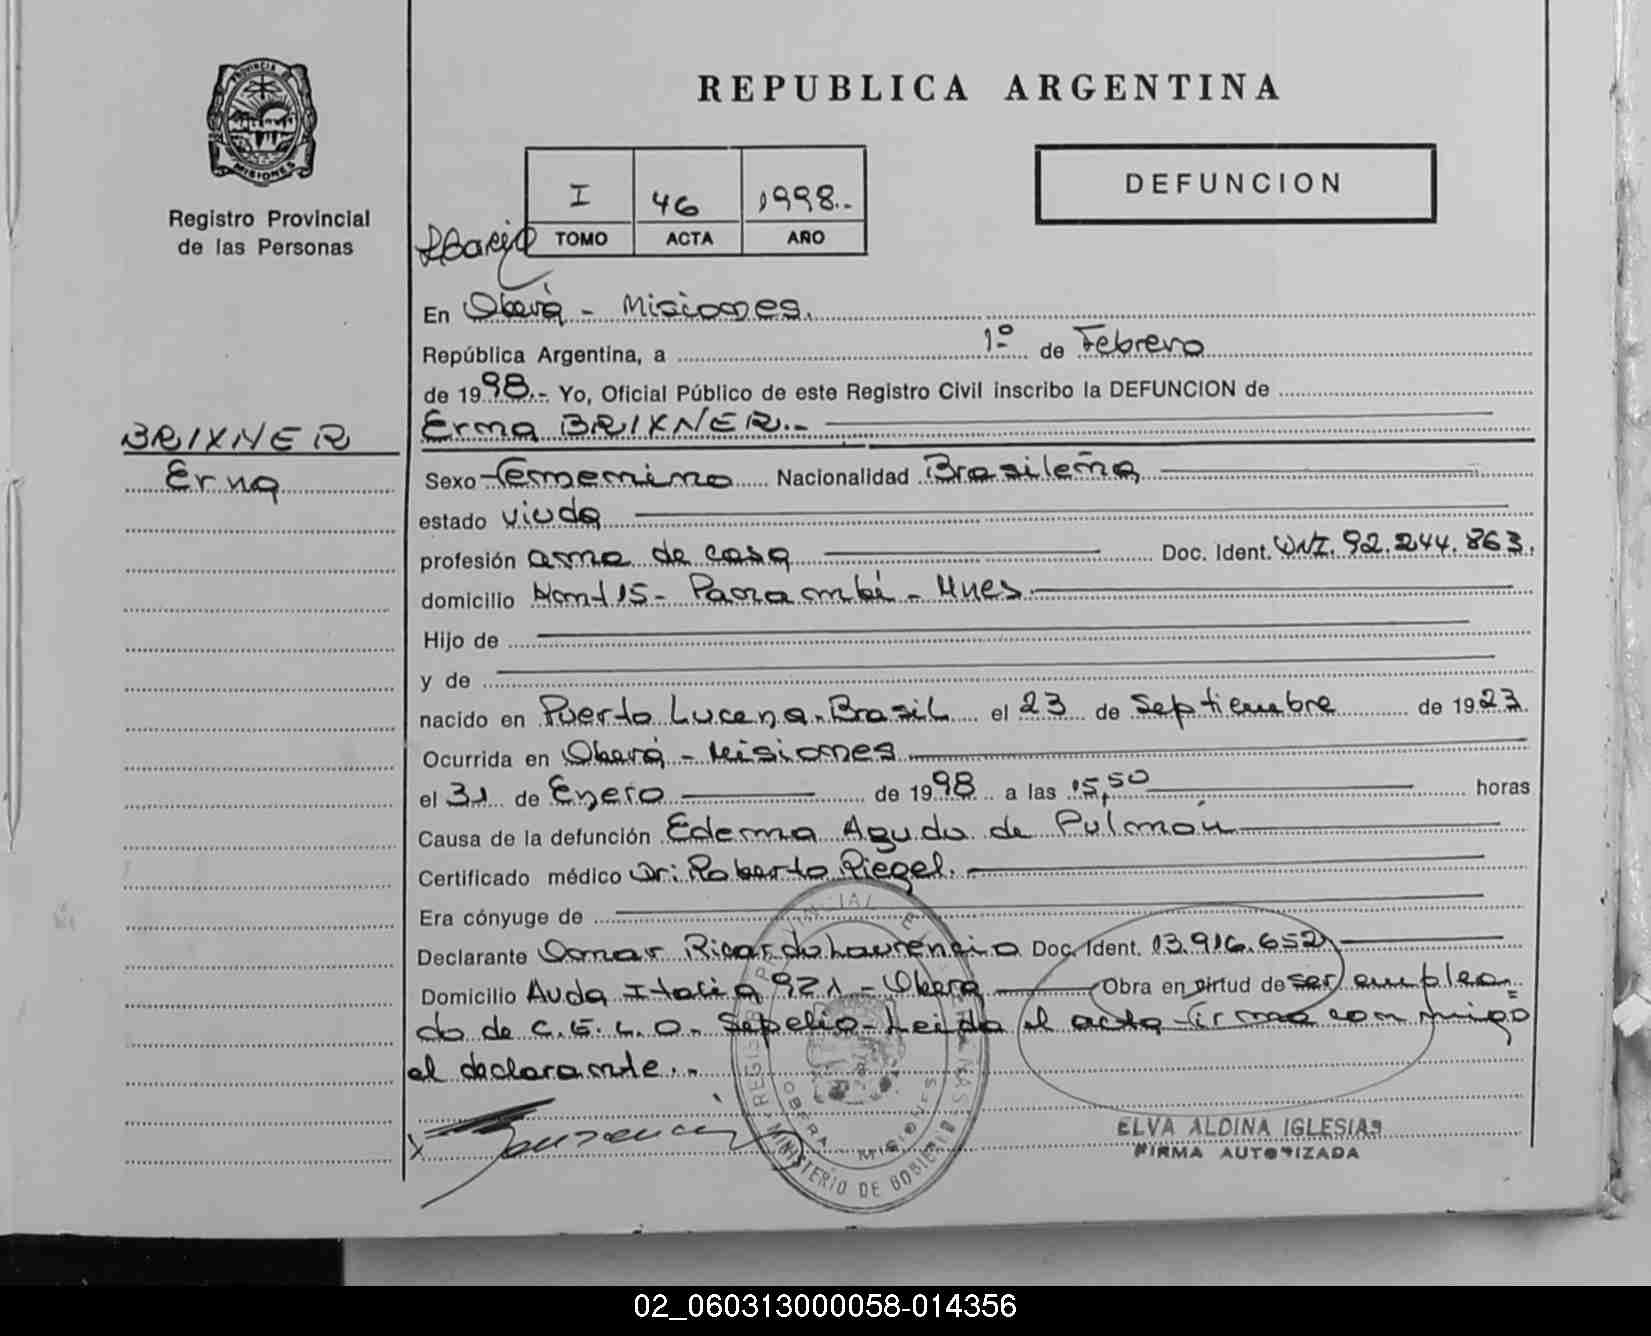 PROVINCIA DE
MISIONES
Registro Provincial
de las Personas
REPUBLICA ARGENTINA
I 46 1998.-
TOMO ACTA AÑO
DEFUNCION
En Oberá - Misiones.
República Argentina, a 1º de Febrero
de 1998.- Yo, Oficial Público de este Registro Civil inscribo la DEFUNCION de
BRIXNER
Erna BRIXNER.-
Erna
Sexo femenino Nacionalidad Brasileña
estado viuda
profesión ama de casa Doc. Ident. DNI. 92.244.863.
domicilio 15 - Panambí - Mnes
Hijo de
y de
nacido en Puerto Lucena - Brasil el 23 de Septiembre de 1923
Ocurrida en Oberá - Misiones
el 31 de Enero de 1998 a las 15,50 horas
Causa de la defunción Edema Agudo de Pulmón
Certificado médico Dr: Roberto Riegel.
Era cónyuge de
Declarante Omar Ricardo Laurencio Doc. Ident. 13.916.652
Domicilio Avda Italia 921 - Oberá Obra en virtud de ser emplea=
do de C.E.L.O. Sepelio - Leida el acta firma conmigo
el declarante.-
X
OBERA MISIONES
MINISTERIO DE GOBIERNO
ELVA ALDINA IGLESIAS
FIRMA AUTORIZADA
02_060313000058-014356